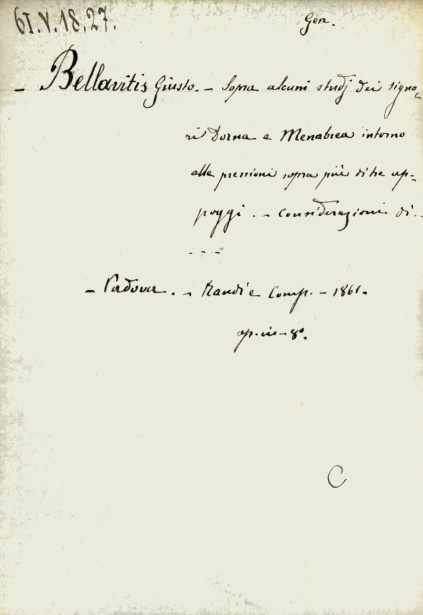 61.V.18.27.
Gen.
- Bellavitis Giusto. - Sopra alcuni studj dei signo-
ri Dorna e Menabrea intorno
alle pressioni sopra più di tre ap-
poggi. - Considerazioni di..
- - -
- Padova. - Randi e Comp. - 1861.
op. in-8°.
C